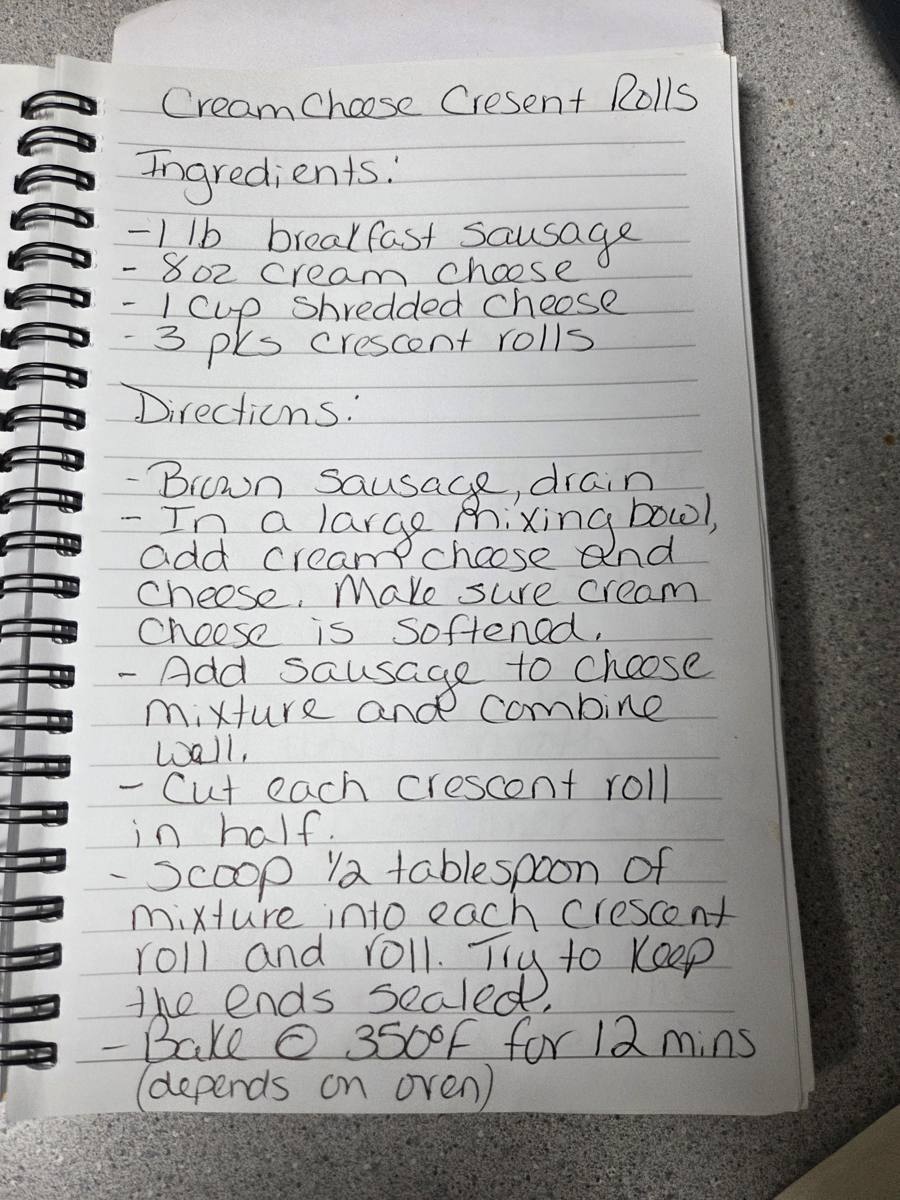 Cream Cheese Cresent Rolls
Ingredients:
- 1 lb breakfast sausage
- 8oz cream cheese
- 1 cup shredded cheese
- 3 pks crescent rolls
Directions:
- Brown sausage, drain
- In a large mixing bowl,
add cream cheese and
cheese. Make sure cream
cheese is softened.
- Add sausage to cheese
mixture and combine
well.
- Cut each crescent roll
in half.
- Scoop 1/2 tablespoon of
mixture into each crescent
roll and roll. Try to keep
the ends sealed.
- Bake @ 350°F for 12 mins
(depends on oven)